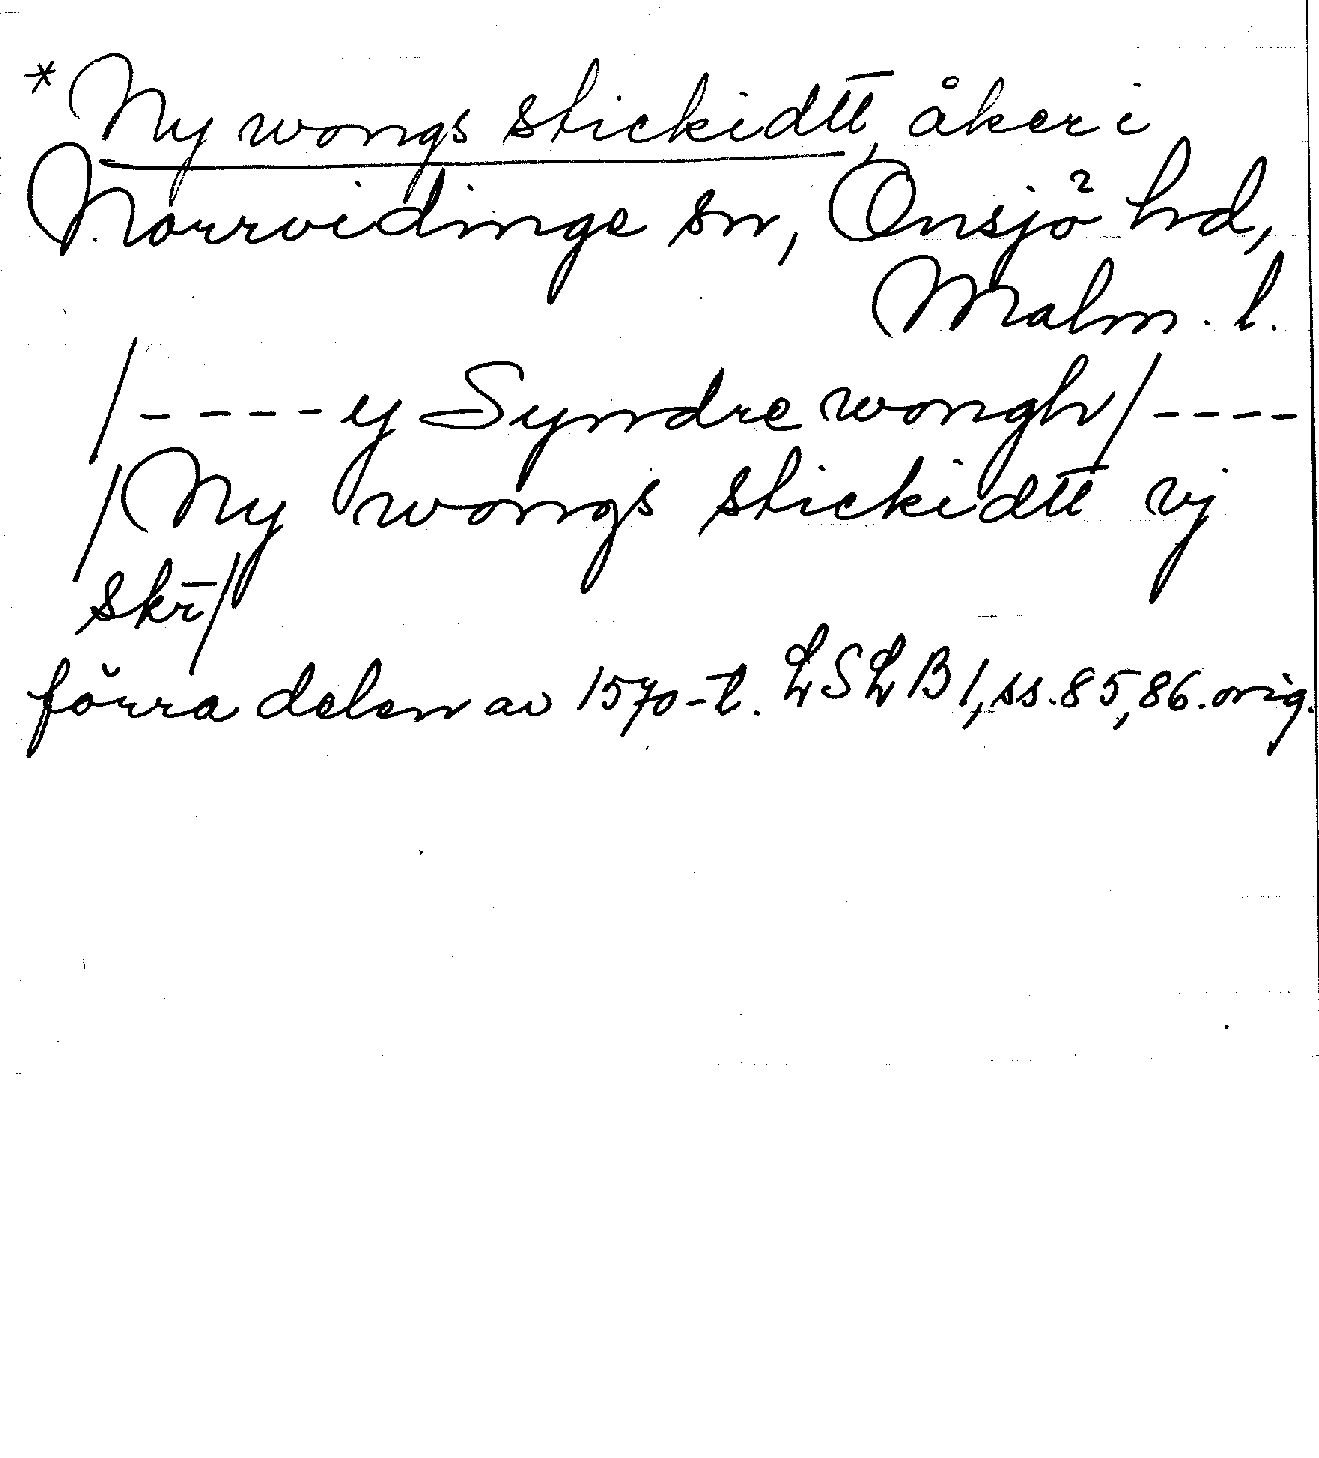 *Ny wongs stickidtt, åker i
Norrvidinge sn, Onsjö hd,
Malm. l.
/- - - - ij Syndre wongh/- - - -
/Ny wongs stickidtt vj
skr̄/
förra delen av 1570-t. LSLB 1, ss. 85, 86. orig.